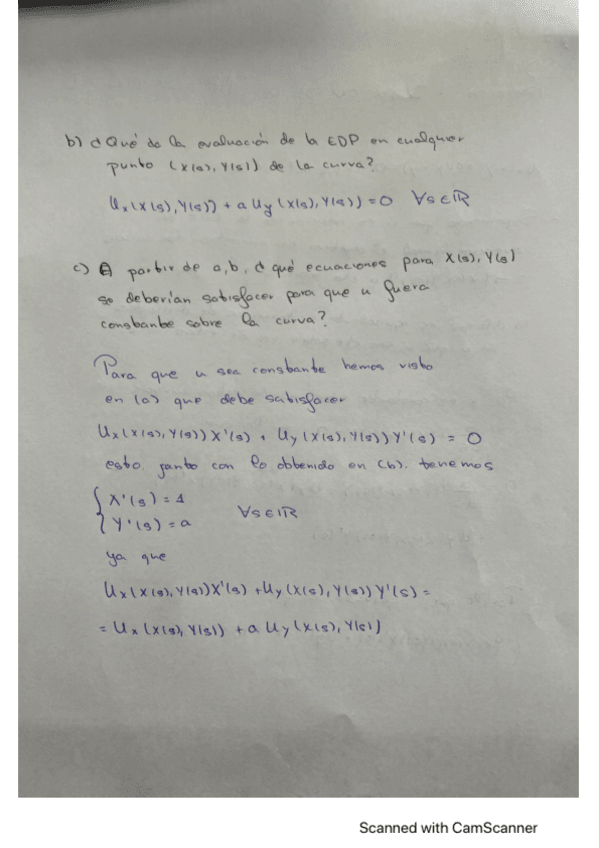 b) ¿Qué da la evaluación de la EDP en cualquier
punto (X(s), Y(s)) de la curva?
Ux(X(s), Y(s)) + a Uy(X(s), Y(s)) = 0 ∀s∈ℝ
c) A partir de a, b, ¿qué ecuaciones para X(s), Y(s)
se deberían satisfacer para que u fuera
constante sobre la curva?
Para que u sea constante hemos visto
en (a) que debe satisfacer
Ux(X(s), Y(s)) X'(s) + Uy(X(s), Y(s)) Y'(s) = 0
esto, junto con lo obtenido en (b), tenemos
{ X'(s) = 1
{ Y'(s) = a ∀s∈ℝ
ya que
Ux(X(s), Y(s)) X'(s) + Uy(X(s), Y(s)) Y'(s) =
= Ux(X(s), Y(s)) + a Uy(X(s), Y(s))
Scanned with CamScanner